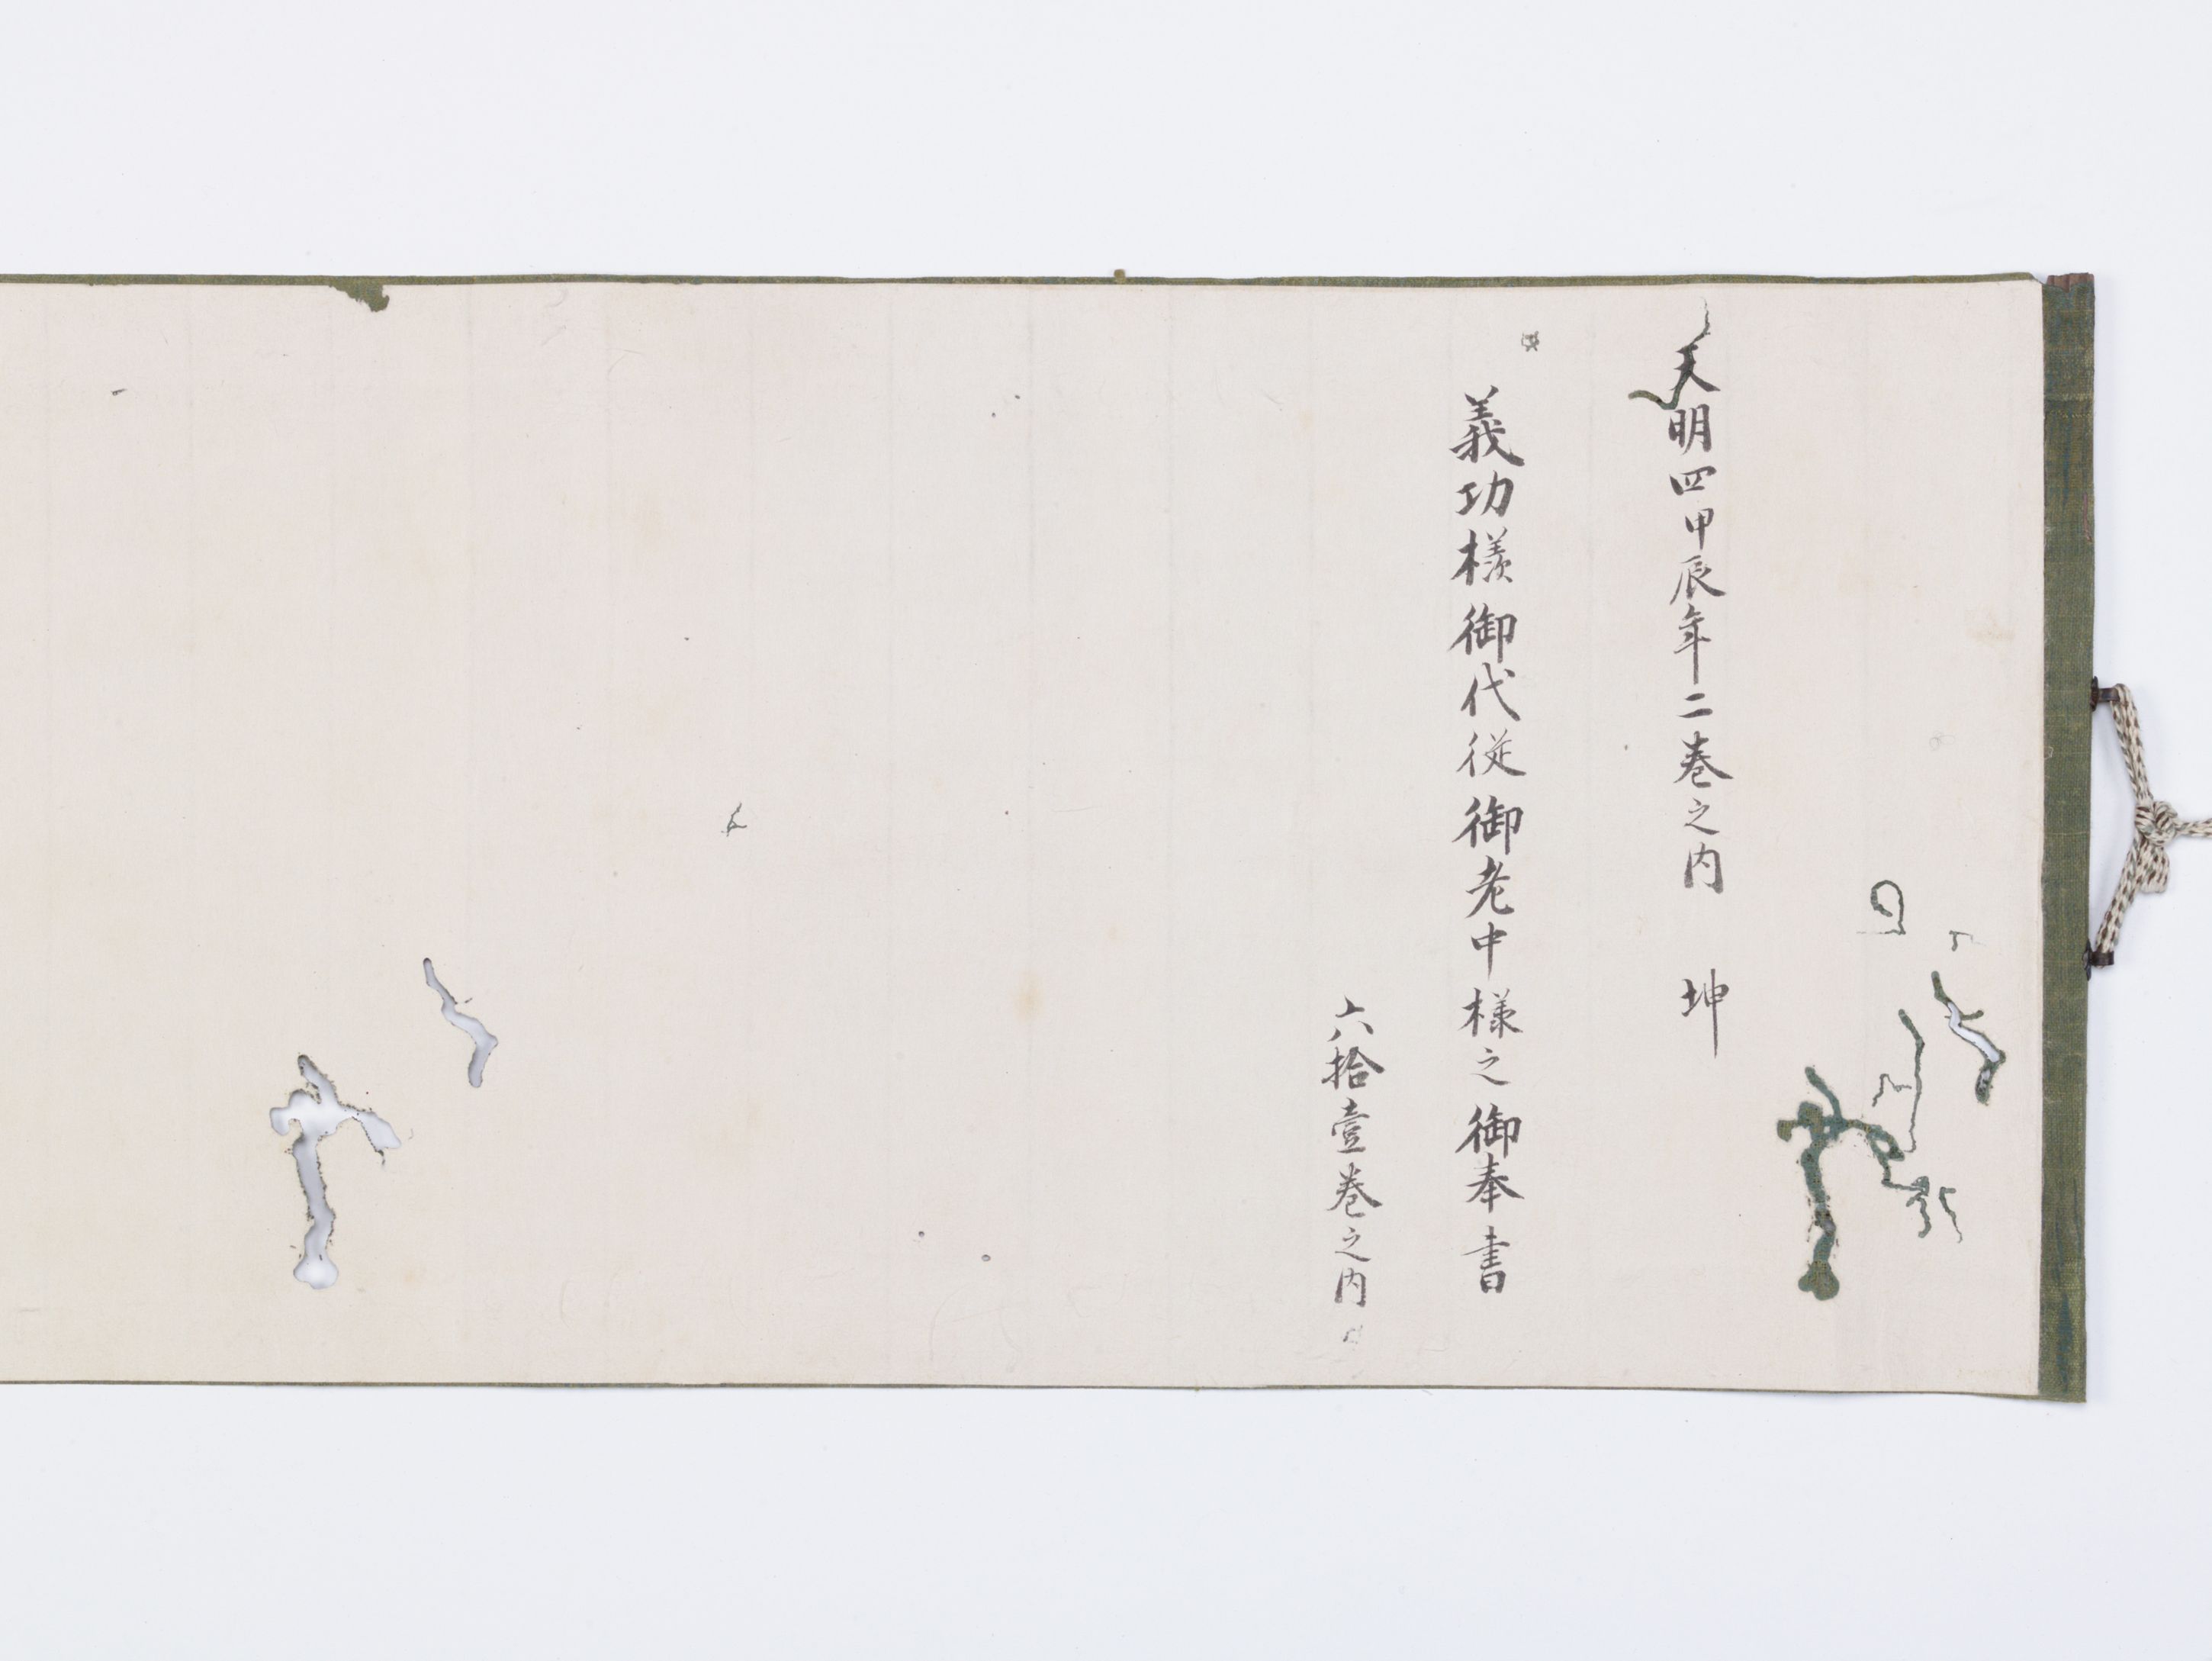 天明四甲辰年二巻之内　坤
義功様御代従御老中様之御奉書
六拾壹巻之内